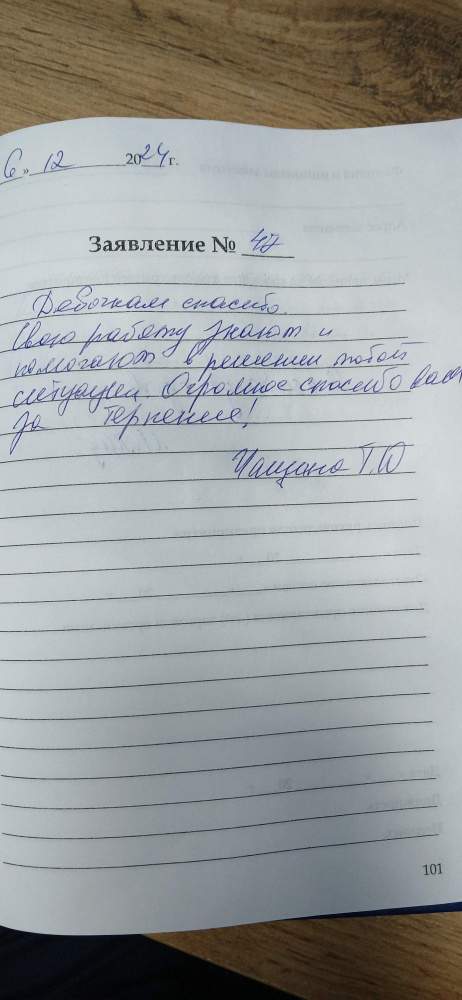 6 » 12 2024 г.
Заявление № 47
Девочкам спасибо.
Свою работу знают и
помогают в решении любой
ситуации. Огромное спасибо вам
за терпение!
Чащина Т.О
101